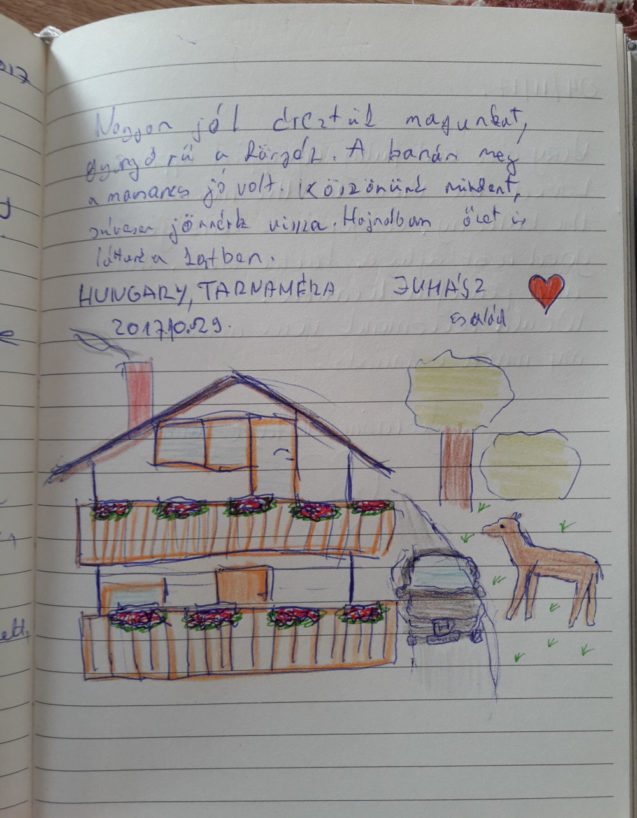 Nagyon jól éreztük magunkat,
gyönyörű a környék. A banán meg
a mamares jó volt. Köszönünk mindent,
szívesen jönnénk vissza. Hajnalban őzet is
láttunk a
HUNGARY, TARNAMÉRA JUHÁSZ
2017.10.29. család
2017